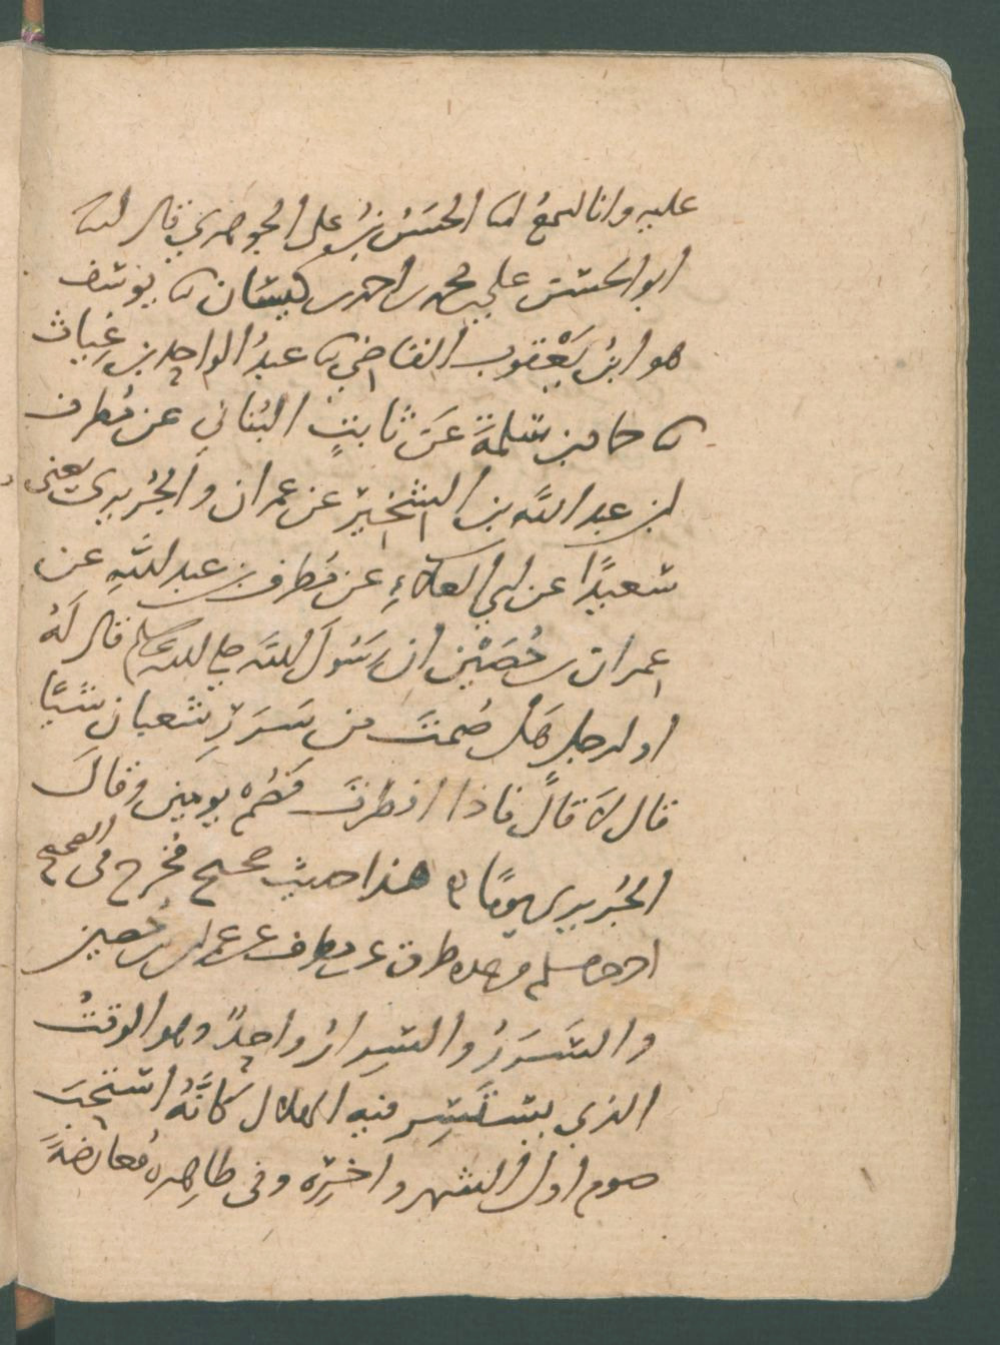 عليه وانا اسمع انا الحسَنُ بنُ على الجوهري قال انا
ابو الحسن علي بن محمد بن احمد بن كيسان نا يوسف
هو ابنُ يَعْقوب القاضي نا عبدُ الواحد بن غِياث
نا حماد بن سَلمةَ عَن ثابتٍ البُناني عن مُطرف
ابن عبد الله بن الشخير عن عمران والجُريري يعنى
سَعيدًا عن ابي العلاءِ عن مُطرف بن عبد اللهِ عن
عمران بن حُصَيْن ان رَسُولَ الله صلى الله عليه وسلم قال لَهُ
او لرجل هَل صُمتَ من سَرَرِ شعبان شيًا
قال لا قالَ فاذا افطرتَ فصُم يومين وقالَ
الجُريري يومًا هذا حديث صحيح مُخرج فى الصحيح
اخرجه مسلم من عده طرق عن مطرف عن عمران بن حُصين
والسَرَرُ والسِرارُ واحِدٌ وهو الوقتُ
الذي يستَسِر فيه الهلال كانَّهُ استحَبَ
صوم اول الشهر واخِرِه وفى ظاهِره مُعارضَةً